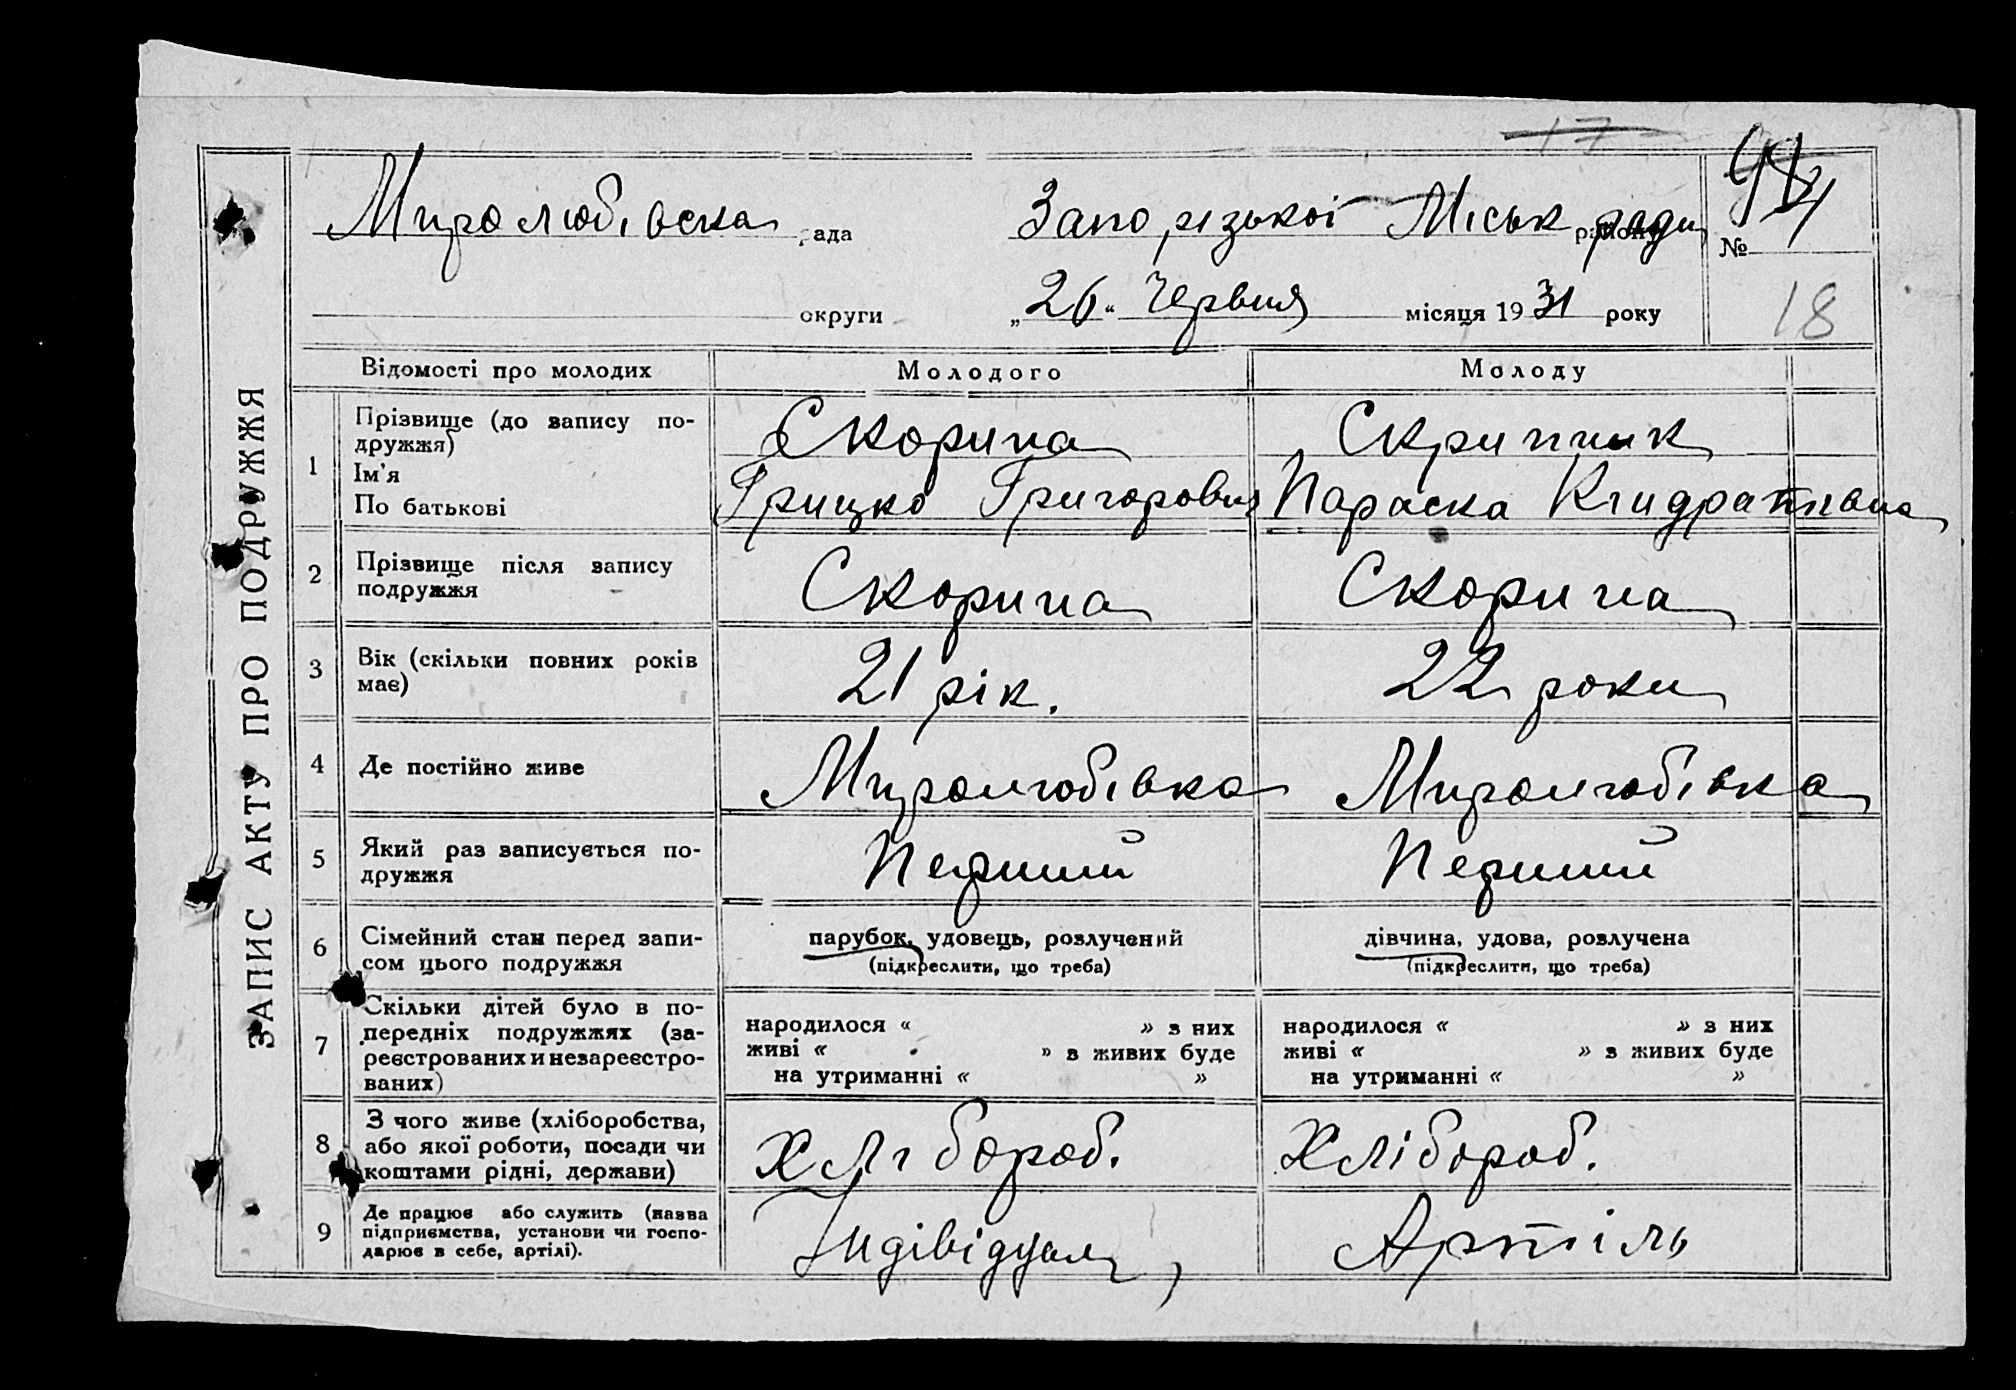 17
Миролюбівска рада Запорізької Міськ ради району №
18
округи „26“ Червня місяця 1931 року
ЗАПИС АКТУ ПРО ПОДРУЖЖЯ
Відомості про молодих Молодого Молоду
1 Прізвище (до запису по-
дружжя) Скорина Скрипник
Ім'я
По батькові Грицко Григорович Параска Кіндратівна
2 Прізвище після запису
подружжя Скорина Скорина
3 Вік (скільки повних років
має) 21 рік. 22 роки
4 Де постійно живе Миролюбівка Миролюбівка
5 Який раз записується по-
дружжя Перший Перший
6 Сімейний стан перед запи-
сом цього подружжя парубок, удовець, розлучений дівчина, удова, розлучена
(підкреслити, що треба) (підкреслити, що треба)
7 Скільки дітей було в по-
передніх подружжях (за-
реєстрованих и незареєстро-
ваних) народилося « » з них народилося « » з них
живі « » з живих буде живі « » з живих буде
на утриманні « » на утриманні « »
8 З чого живе (хліборобства,
або якої роботи, посади чи
коштами рідні, держави) Хлібороб. Хлібороб.
9 Де працює або служить (назва
підприємства, установи чи госпо-
дарює в себе, артілі). Індівідуал Артіль